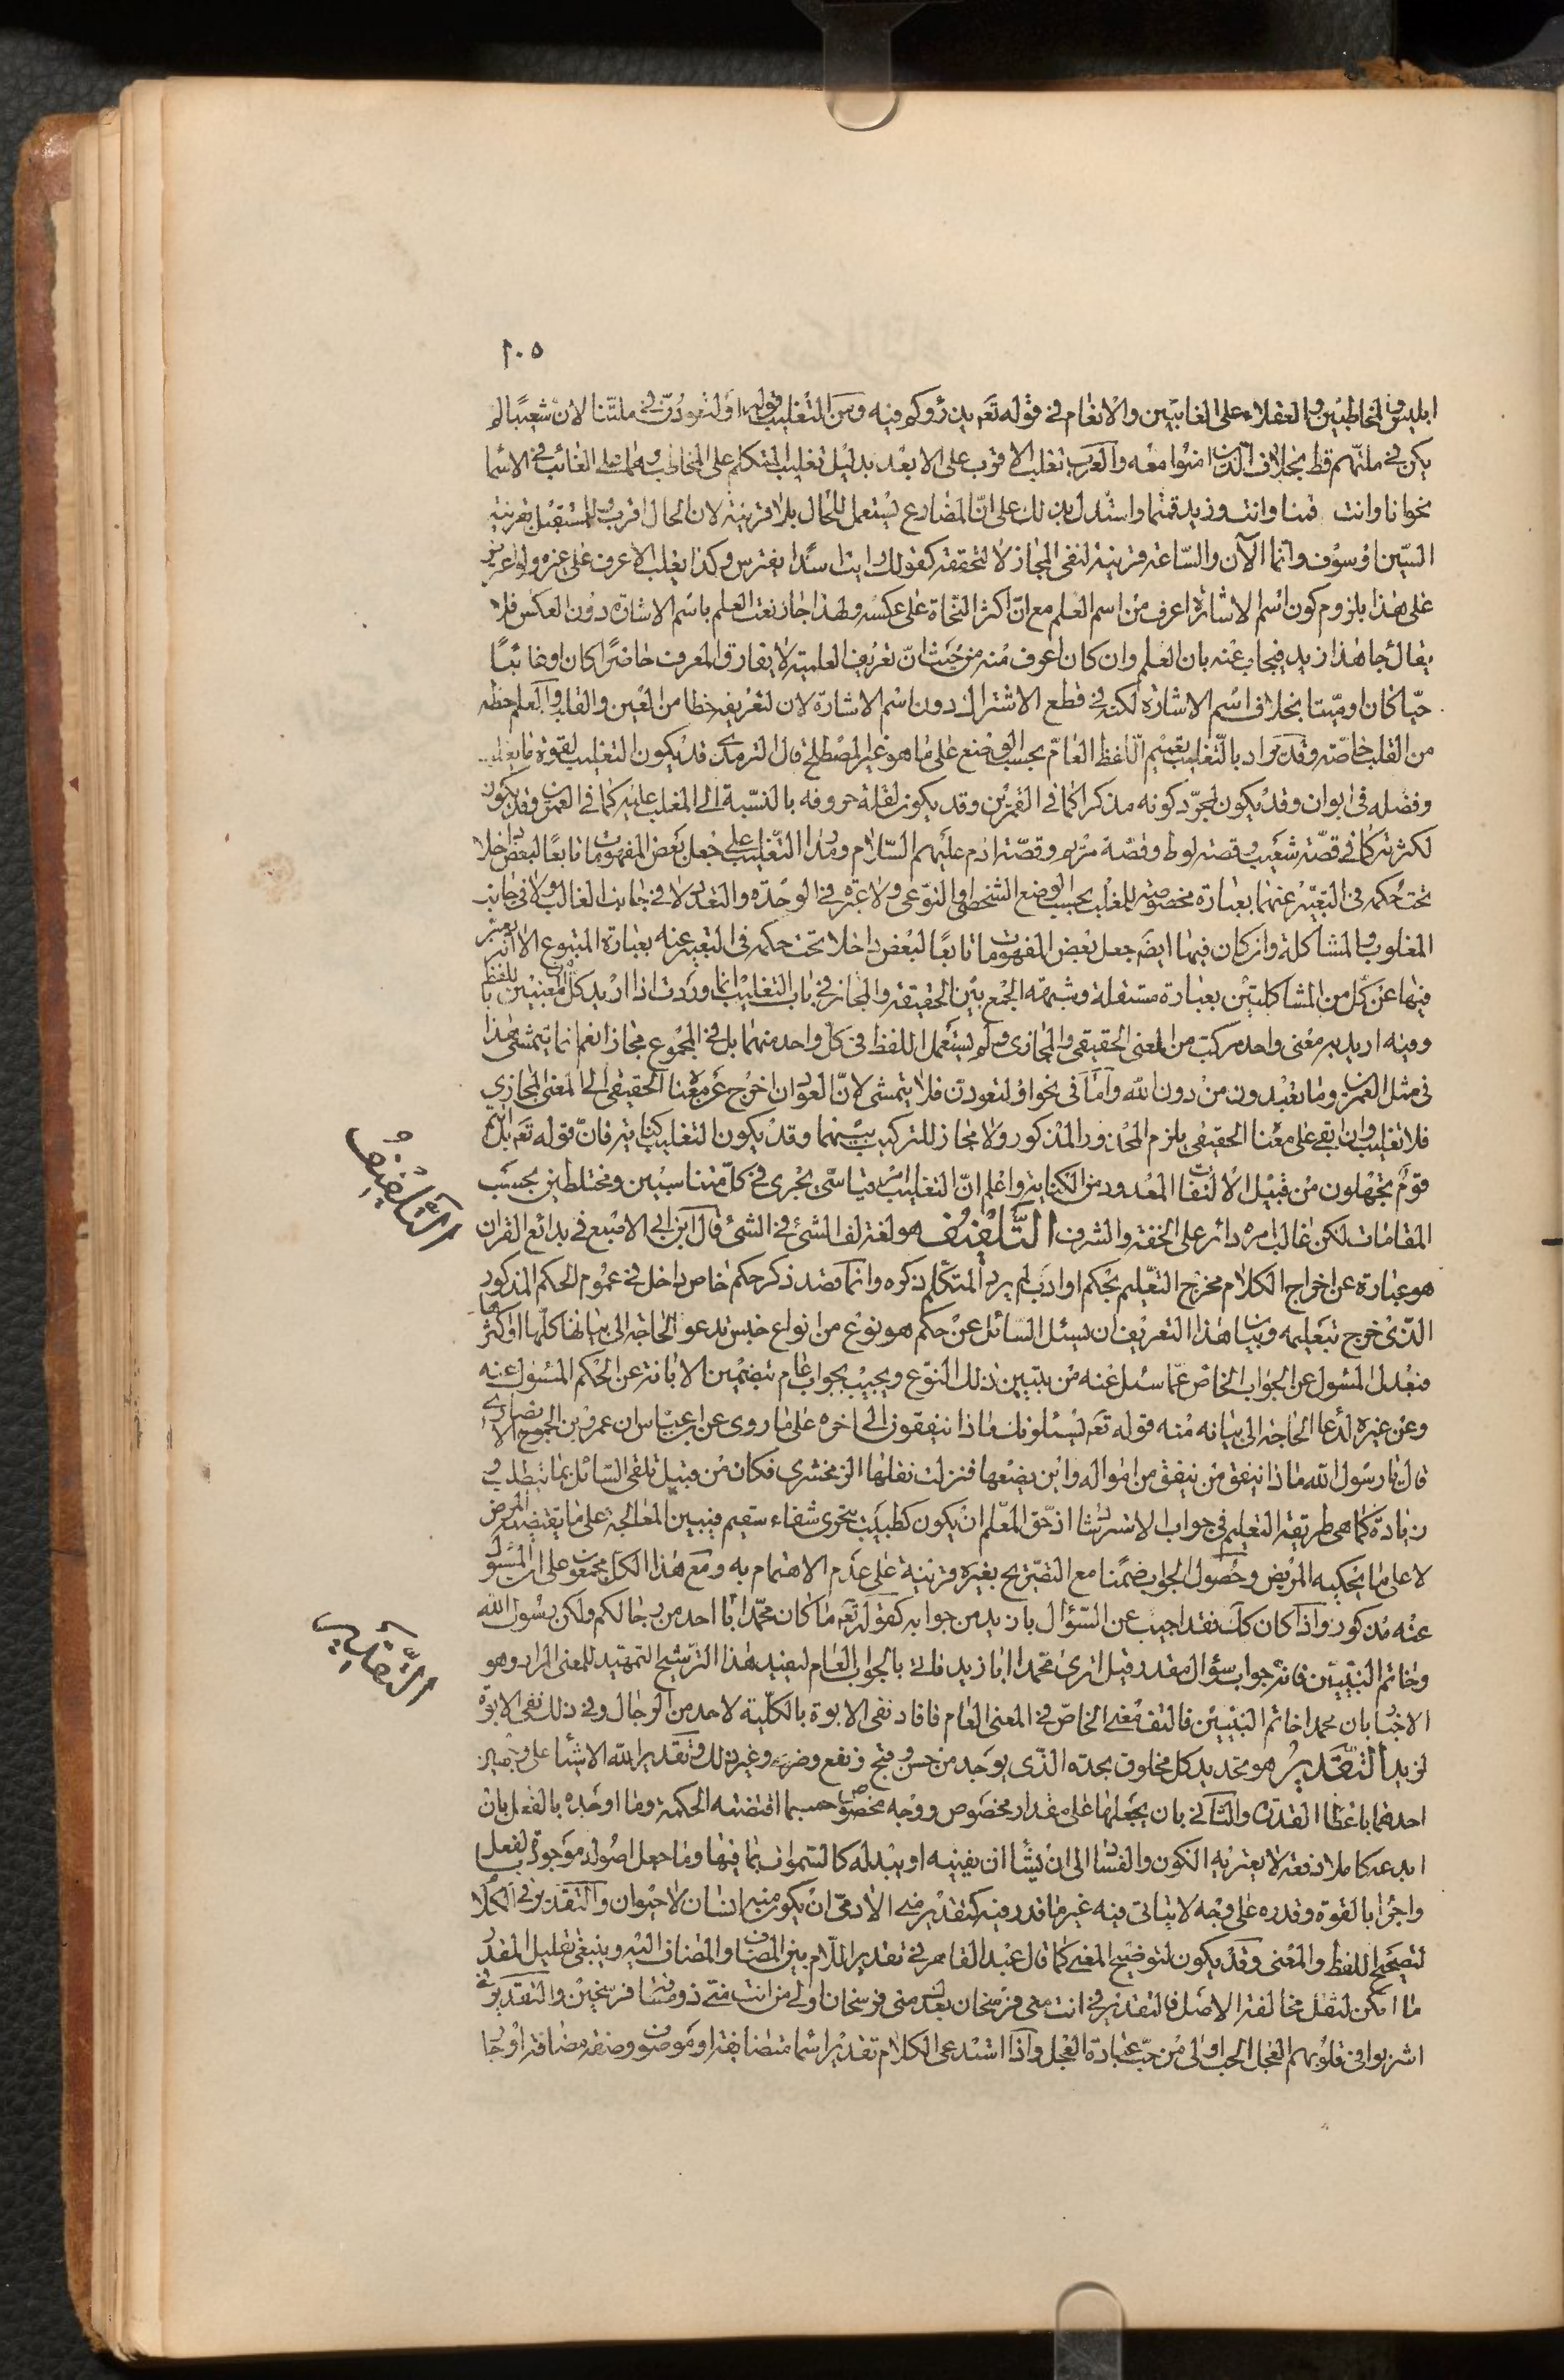 ١٠٥
ابليس والمخاطبين والعقلاء على الغائبين والانعام في قوله تعم يذرؤكم فيه ومن التغليب قوله او لتعودن في ملتنا لان شعيبا لم
يكن في ملتهم قط بخلاف الذين امنوا معه والعرب تغلب الاقرب على الابعد بدليل تغليب المتكلم على المخاطب وهما على الغائب في الاسما
نحو انا وانت قمنا وانت وزيد قمتما واستدل بذلك على ان المضارع يستعمل للحال بلا قرينة لان الحال اقرب للمستقبل بقرينة
السين او سوف وانما الآن والساعة قرينة لنفي المجاز لا لتحققه كقولك رايت اسدا يفترس وكذا يغلب الاعرف على غيره
على هذا بلزوم كون اسم الاشارة اعرف من اسم العلم مع ان اكثر النحاة على عكسه ولهذا جاز نعت العلم باسم الاشارة دون العكس فلا
يقال جا هذا زيد فيجاب عنه بان العلم وان كان اعرف منه من حيث ان تعريف العلمية لا يفارق المعرف حاضرا كان او غائبا
حيا كان او ميتا بخلاف اسم الاشارة لكنه في قطع الاشتراك دون اسم الاشارة لان لتعريفه حظا من العين والقلب والعلم حظه
من القلب خاصة وقد يراد بالتغليب تعميم اللفظ العام بحسب الوضع على ما هو غير المصطلح قال الترمذي قد يكون التغليب لقوة ما يغلب
وفضله في ابوان وقد يكون لمجرد كونه مذكرا كما في القمرين وقد يكون لقلة حروفه بالنسبة الى المغلب عليه كما في العمرين وقد يكون
لكثرته كما في قصة شعيب وقصة لوط وقصة مريم وقصة ادم عليهم السلام ومدار التغليب على جعل بعض المفهومات تابعا لبعض داخلا
تحت حكمه في التعبير عنهما بعبارة مخصوصة للمغلب بحسب الوضع الشخصي او النوعي ولا عبرة في الوحدة والتعدد لا في جانب الغالب ولا في جانب
المغلوب والمشاكلة وان كان فيها ايضا جعل بعض المفهومات تابعا لبعض داخلا تحت حكمه في التعبير عنه بعبارة المتبوع الا انه يعبر
فيها عن كل من المشاكلتين بعبارة مستقلة وشبهة الجمع بين الحقيقة والمجاز في باب التغليب انما وردت اذا اريد كل من المعنيين باللفظ
وفيه اريد به معنى واحد مركب من المعنى الحقيقي والمجازي ولم يستعمل اللفظ في كل واحد منهما بل في المجموع مجازا نعم انما يتمشى هذا
في مثل العمرين وما تعبدون من دون الله واما في نحو او لتعودن فلا يتمشى لان العود ان اخرج عن معناه الحقيقي الى المعنى المجازي
فلا تغليب وان ابقي على معناه الحقيقي يلزم المحذور المذكور ولا مجاز للتركيب بينهما وقد يكون التغليب كناية فان قوله تعم بل انتم
قوم تجهلون من قبيل الالتفات المعدود من الكناية واعلم ان التغليب امر قياسي يجري في كل متناسبين ومختلطين بحسب
المقامات لكن غالب امره دائر على الخفة والشرف التلفيف هو لغة لف الشئ في الشئ قال ابن ابي الاصبع في بدائع القران
هو عبارة عن اخراج الكلام مخرج التعليم بحكم او ادب لم يرد المتكلم ذكره وانما قصد ذكر حكم خاص داخل في عموم الحكم المذكور
الذي خرج بتعليمه وبيان هذا التعريف ان يسئل السائل عن حكم هو نوع من انواع جنس تدعو الحاجة الى بيانها كلها او اكثرها
فيعدل المسئول عن الجواب الخاص عما سئل عنه من تبيين ذلك النوع ويجيب بجواب عام يتضمن الابانة عن الحكم المسئول عنه
وعن غيره لدعا الحاجة الى بيانه منه قوله تعم يسئلونك ماذا ينفقون الى اخره على ما روى عن ابن عباس ان عمرو بن الجموح الانصاري
قال يا رسول الله ماذا ننفق من ينفق من امواله واين يضعها فنزلت نقلها الزمخشري فكان من قبيل تلقي السائل بما يتطلب و
زيادة كما هي طريقة التعليم في جواب الاسترشاد اذ حق المعلم ان يكون كطبيب يتحرى شفاء سقيم فيبين المعالجة على ما يقتضيه المرض
لا على ما يحكيه المريض وحصول الجواب ضمنا مع التصريح بغيره قرينة على عدم الاهتمام به ومع هذا الكل مجمعون على ان المسئول
عنه مذكور واذا كان كك فقد اجيب عن السؤال بازيد من جوابه كقوله تعم ما كان محمد ابا احد من رجالكم ولكن رسول الله
وخاتم النبيين فانه جواب سؤال مقدر قيل اترى محمدا ابا زيد فاتى بالجواب العام ليفيد هذا الترشيح التمهيد للمعنى المراد وهو
الاخبار بان محمدا خاتم النبيين فالتف معنى الخاص في المعنى العام فافاد نفي الابوة بالكلية لاحد من الرجال وفي ذلك نفي الابوة
لزيد التقدير هو تحديد كل مخلوق بحده الذي يوجد من حسن وقبح ونفع وضر وغير ذلك وتقدير الله الاشيا على وجهين
احدهما باعطا القدرة والثاني بان يجعلها على مقدار مخصوص ووجه مخصوص حسبما اقتضته الحكمة وما اوجده بالفعل بان
ابدعه كاملا دفعة لا يعتريه الكون والفساد الى ان يشا ان يفنيه او يبدله كالسموات بما فيها وما جعل اصوله موجودة بالفعل
واجزا بالقوة وقدره على وجه لا يتاتى فيه غير ما قدر فيه كتقدير مني الآدمي ان يكون منه انسان لا حيوان والتقدير في الكلام
لتصحيح اللفظ والمعنى وقد يكون لتوضيح المعنى كما قال عبد القاهر في تقدير اللام بين المضاف والمضاف اليه وينبغي تقليل المقدر
ما امكن لتقل مخالفة الاصل فالتقدير في انت مني فرسخان بعدك مني فرسخان اولى من انت مني ذو مسافة فرسخين والتقدير في
اشربوا في قلوبهم العجل الحب اولى من حب عبادة العجل واذا استدعى الكلام تقدير اسما متضايفة او موصوف وصفة مضافة او جا
التلفيف
التقدير